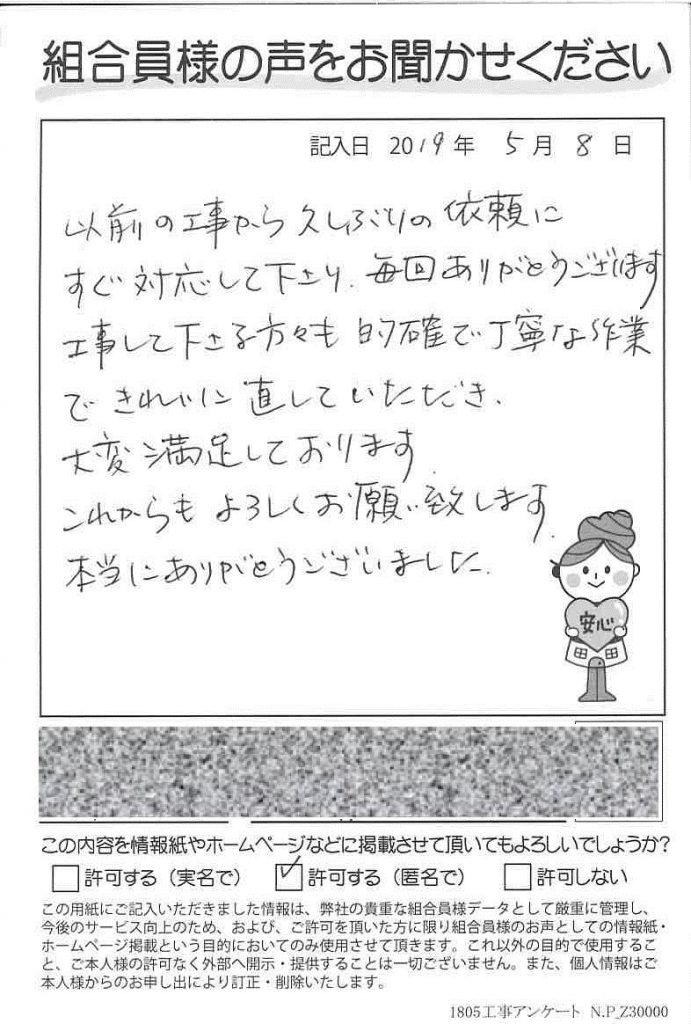 組合員様の声をお聞かせください
記入日 2019年 5月 8日
以前の工事から久しぶりの依頼に
すぐ対応して下さり、毎回ありがとうございます
工事して下さる方々も的確で丁寧な作業
できれいに直していただき、
大変満足しております。
これからもよろしくお願い致します。
本当にありがとうございました。
安心
この内容を情報紙やホームページなどに掲載させて頂いてもよろしいでしょうか?
□許可する(実名で) ☑許可する(匿名で) □許可しない
この用紙にご記入いただきました情報は、弊社の貴重な組合員様データとして厳重に管理し、
今後のサービス向上のため、および、ご許可を頂いた方に限り組合員様のお声としての情報紙・
ホームページ掲載という目的においてのみ使用させて頂きます。これ以外の目的で使用するこ
と、ご本人様の許可なく外部へ開示・提供することは一切ございません。また、個人情報はご
本人様からのお申し出により訂正・削除いたします。
1805工事アンケート N.P_Z30000